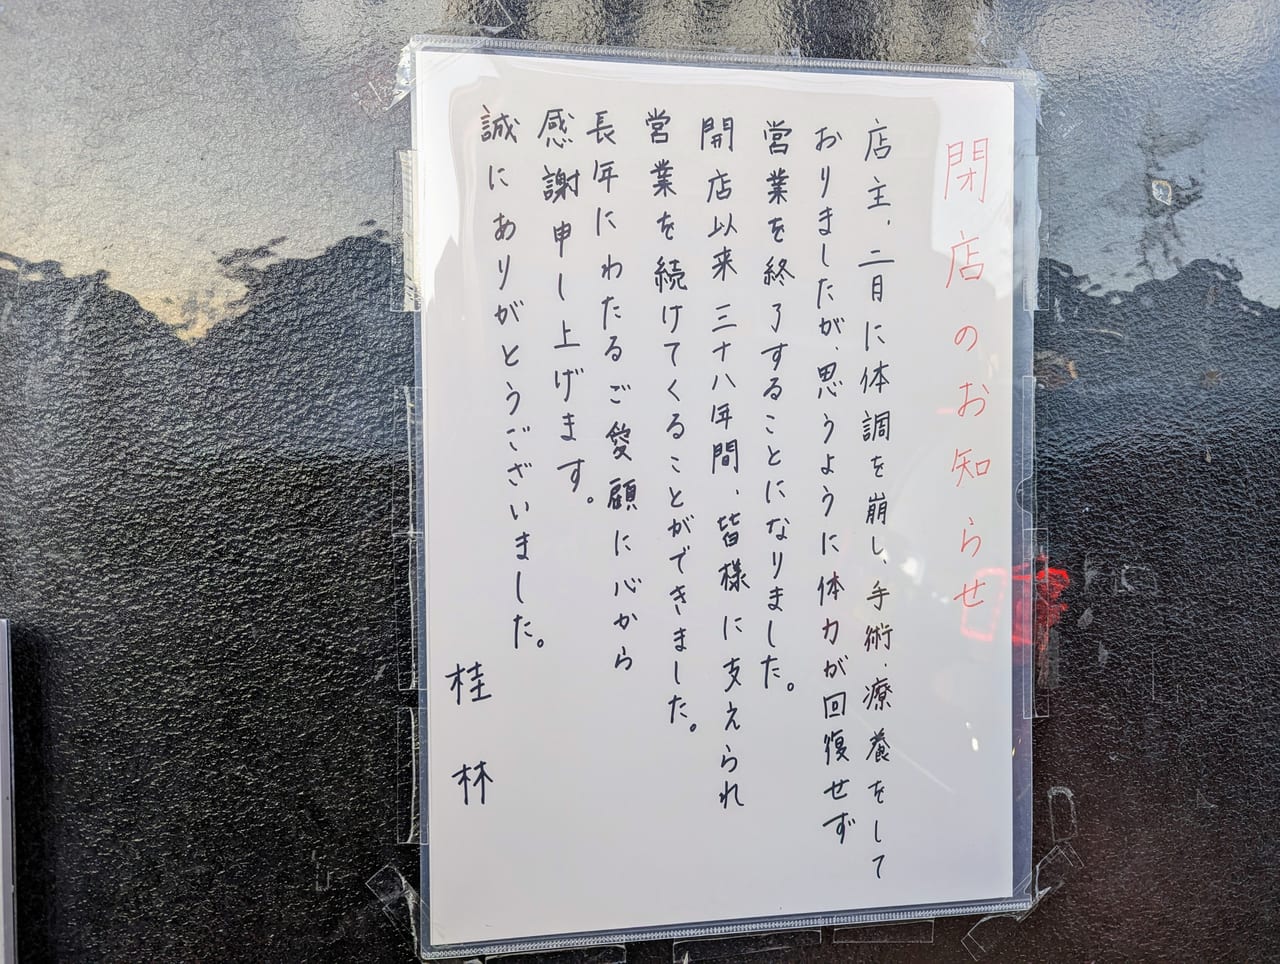 閉店のお知らせ
店主、二月に体調を崩し、手術、療養をして
おりましたが、思うように体力が回復せず
営業を終了することになりました。
開店以来三十八年間、皆様に支えられ
営業を続けてくることができました。
長年にわたるご愛顧に心から
感謝申し上げます。
誠にありがとうございました。
桂林